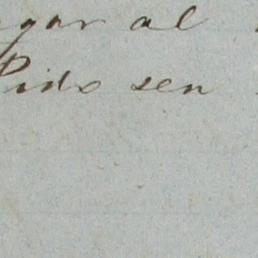 gar al
Pido sen